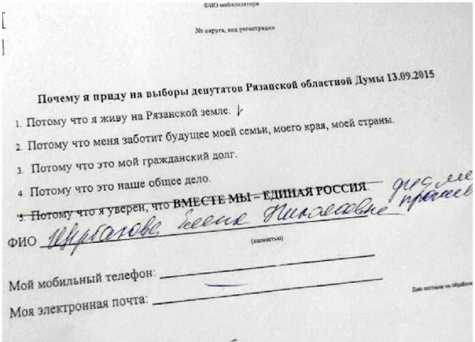 ФИО мобилизатора
№ округа, код регистрации
Почему я приду на выборы депутатов Рязанской областной Думы 13.09.2015
1. Потому что я живу на Рязанской земле.
2. Потому что меня заботит будущее моей семьи, моего края, моей страны.
3. Потому что это мой гражданский долг.
4. Потому что это наше общее дело.
5. Потому что я уверен, что ВМЕСТЕ МЫ – ЕДИНАЯ РОССИЯ
ФИО Щербакова Елена Николаевна против
(полностью)
Мой мобильный телефон:
Моя электронная почта:
Даю согласие на обработку